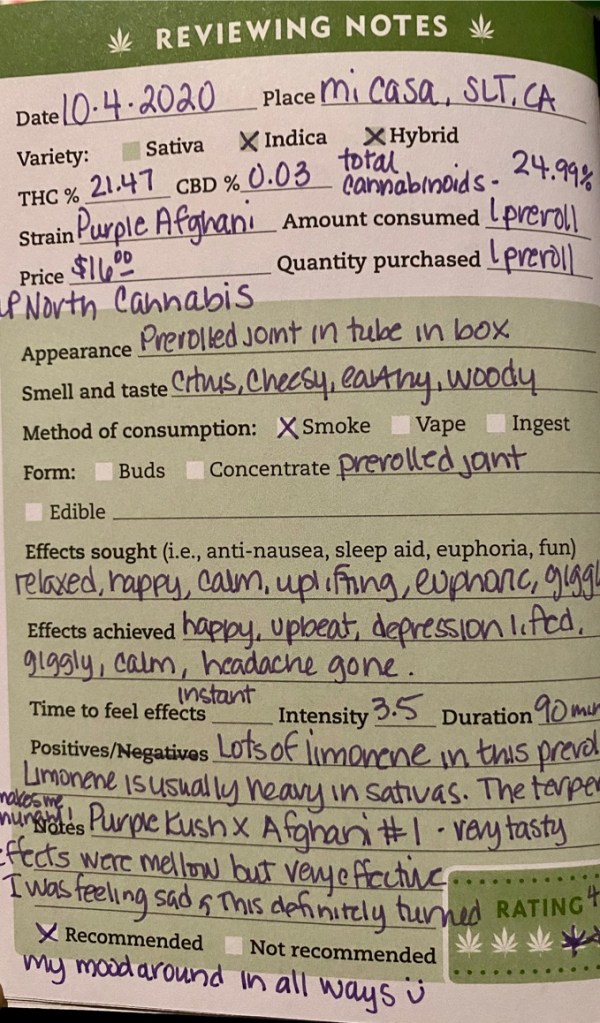 REVIEWING NOTES
Date 10.4.2020 Place mi casa, SLT, CA
Variety: Sativa X Indica X Hybrid
THC % 21.47 CBD % 0.03 total cannabinoids - 24.99%
Strain Purple Afghani Amount consumed 1 preroll
Price $16.00 Quantity purchased 1 preroll
North Cannabis
Appearance Prerolled joint in tube in box
Smell and taste Citrus, cheesy, earthy, woody
Method of consumption: X Smoke Vape Ingest
Form: Buds Concentrate prerolled joint
Edible
Effects sought (i.e., anti-nausea, sleep aid, euphoria, fun)
relaxed, happy, calm, uplifting, euphoric, giggl
Effects achieved happy, upbeat, depression lifted,
giggly, calm, headache gone.
Time to feel effects instant Intensity 3.5 Duration 90 min
Positives/Negatives Lots of limonene in this prerol
Limonene is usually heavy in sativas. The terpe
makes me
hungry!
Notes Purple Kush X Afghani #1 - very tasty
Effects were mellow but very effective
I was feeling sad & this definitely turned
RATING 4
X Recommended Not recommended
my mood around in all ways